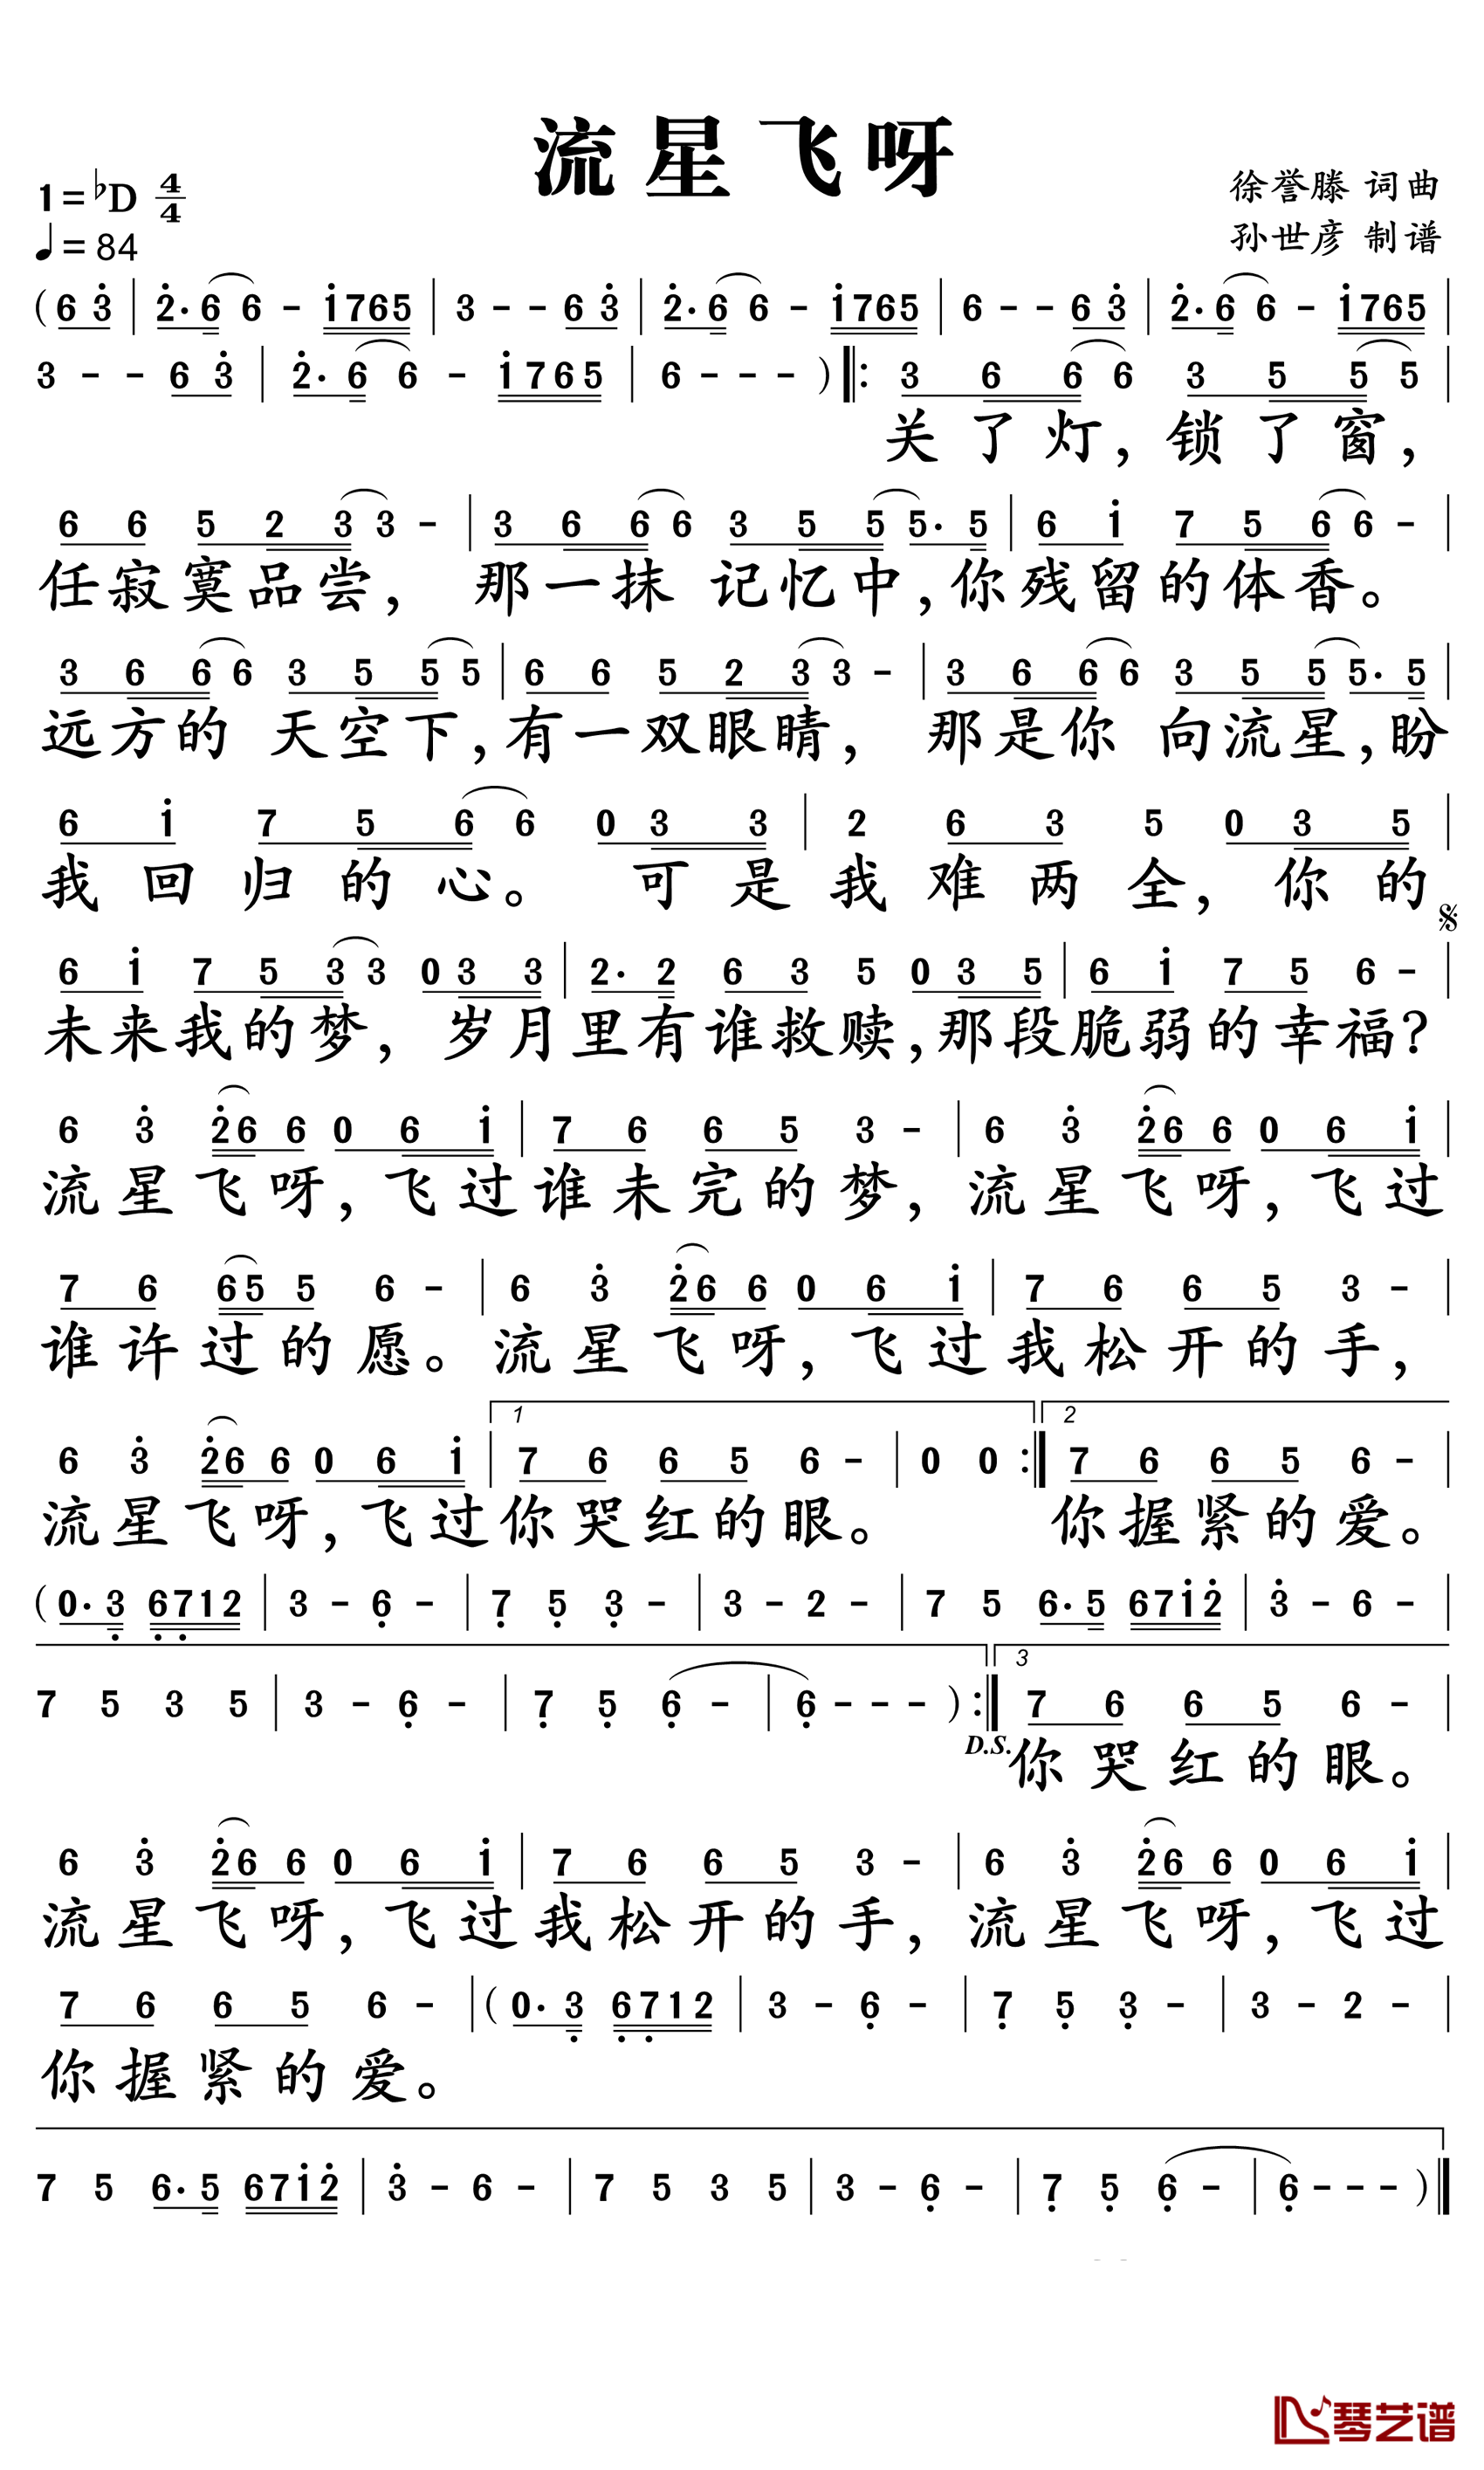 流星飞呀
1=♭D 4/4
徐誉滕 词曲
♩=84
孙世彦 制谱
(6 3̇ | 2̇·6 6 - 1̇765 | 3 - - 6 3̇ | 2̇·6 6 - 1̇765 | 6 - - 6 3̇ | 2̇·6 6 - 1̇765 |
3 - - 6 3̇ | 2̇·6 6 - 1̇765 | 6 - - - ) ‖: 3 6 6 6 3 5 5 5 |
关了灯,锁了窗,
6 6 5 2 3 3 - | 3 6 6 6 3 5 5 5· 5 | 6 1̇ 7 5 6 6 - |
任寂寞品尝, 那一抹 记忆中,你残留的体香。
3 6 6 6 3 5 5 5 | 6 6 5 2 3 3 - | 3 6 6 6 3 5 5 5· 5 |
远方的 天空下,有一双眼睛, 那是你 向流星,盼
6 1̇ 7 5 6 6 0 3 3 | 2 6 3 5 0 3 5 |
我回归的心。 可是我难两全, 你的
6 1̇ 7 5 3 3 0 3 3 | 2· 2 6 3 5 0 3 5 | 6 1̇ 7 5 6 - |
未来我的梦, 岁月里有谁救赎,那段脆弱的幸福?
6 3̇ 2̇6 6 0 6 1̇ | 7 6 6 5 3 - | 6 3̇ 2̇6 6 0 6 1̇ |
流星飞呀,飞过谁未完的梦, 流星飞呀,飞过
7 6 65 5 6 - | 6 3̇ 2̇6 6 0 6 1̇ | 7 6 6 5 3 - |
谁许过的愿。流星飞呀,飞过我松开的手,
1 2
6 3̇ 2̇6 6 0 6 1̇ | 7 6 6 5 6 - | 0 0 :‖ 7 6 6 5 6 - |
流星飞呀,飞过你哭红的眼。 你握紧的爱。
(0· 3̣ 6̣7̣12 | 3 - 6̣ - | 7̣ 5̣ 3̣ - | 3 - 2 - | 7 5 6·5 671̇2̇ | 3̇ - 6 - |
3
7 5 3 5 | 3 - 6̣ - | 7̣ 5̣ 6̣ - | 6̣ - - - ) :‖ 7 6 6 5 6 - |
D.S. 你哭红的眼。
6 3̇ 2̇6 6 0 6 1̇ | 7 6 6 5 3 - | 6 3̇ 2̇6 6 0 6 1̇ |
流星飞呀,飞过我松开的手, 流星飞呀,飞过
7 6 6 5 6 - | (0· 3̣ 6̣7̣12 | 3 - 6̣ - | 7̣ 5̣ 3̣ - | 3 - 2 - |
你握紧的爱。
7 5 6·5 671̇2̇ | 3̇ - 6 - | 7 5 3 5 | 3 - 6̣ - | 7̣ 5̣ 6̣ - | 6̣ - - - ) ‖
琴艺谱